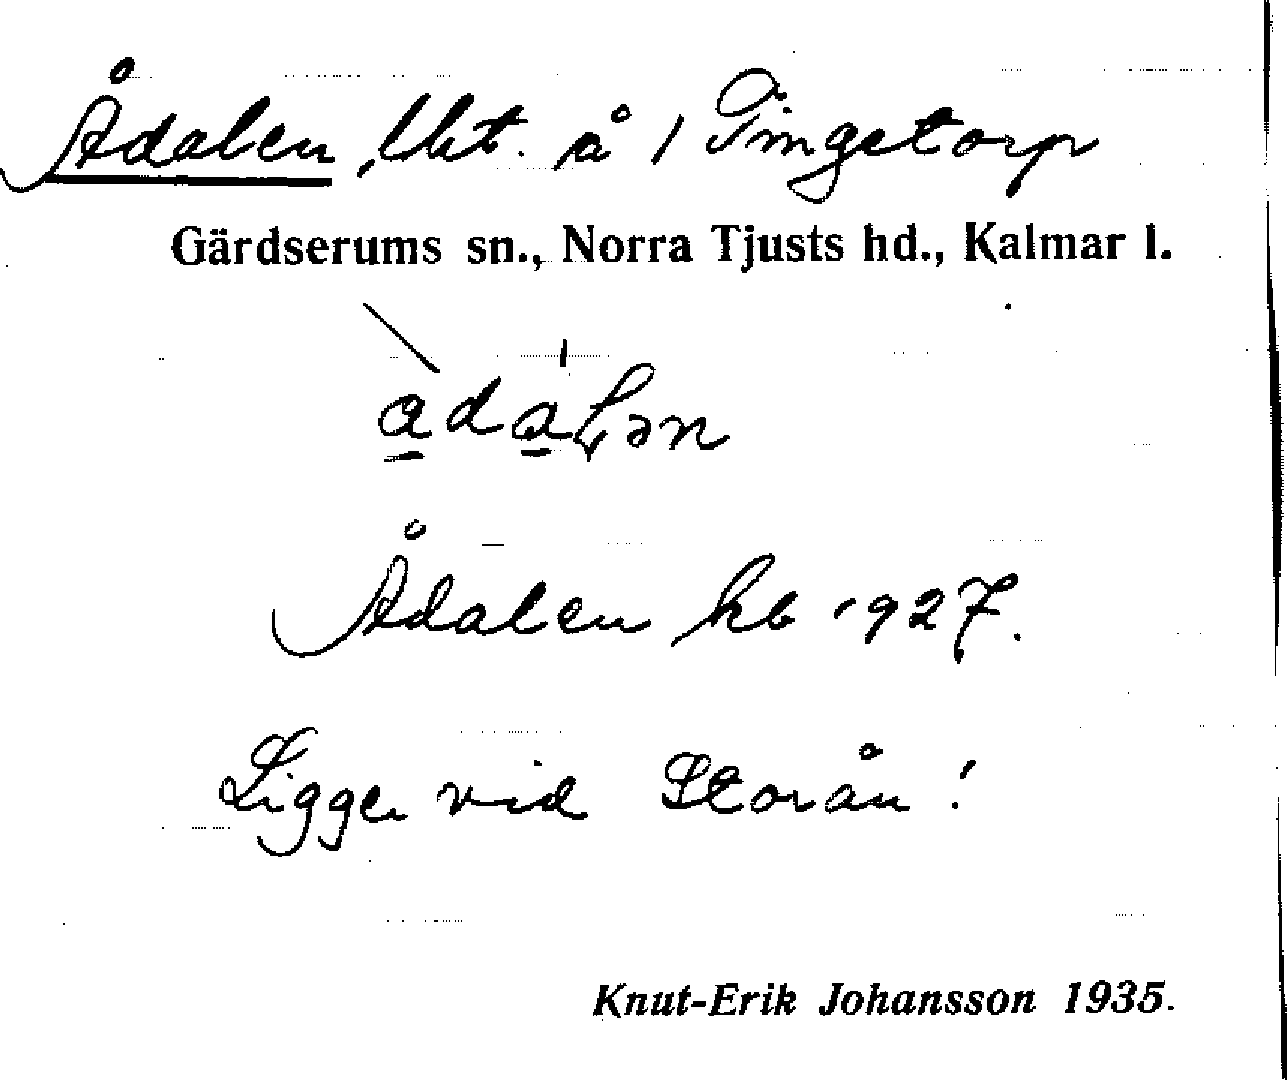 Ådalen, lht. å / Tingetorp
Gärdserums sn., Norra Tjusts hd., Kalmar l.
a̲da̲Lən
Ådalen hb 1927.
Ligger vid Storån!
Knut-Erik Johansson 1935.